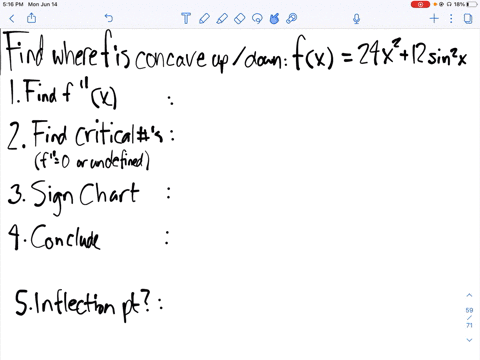 5:16 PM Mon Jun 14
18%
Find where f is concave up/down: f(x) = 24x² + 12 sin²x
1. Find f"(x) :
2. Find critical #'s :
(f"=0 or undefined)
3. Sign Chart :
4. Conclude :
5. Inflection pt? :
59
/
71